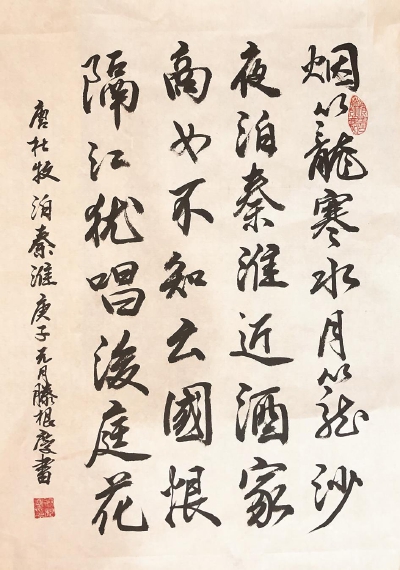 烟笼寒水月笼沙
夜泊秦淮近酒家
商女不知亡國恨
隔江犹唱後庭花
唐杜牧泊秦淮庚子元月滕根庆書